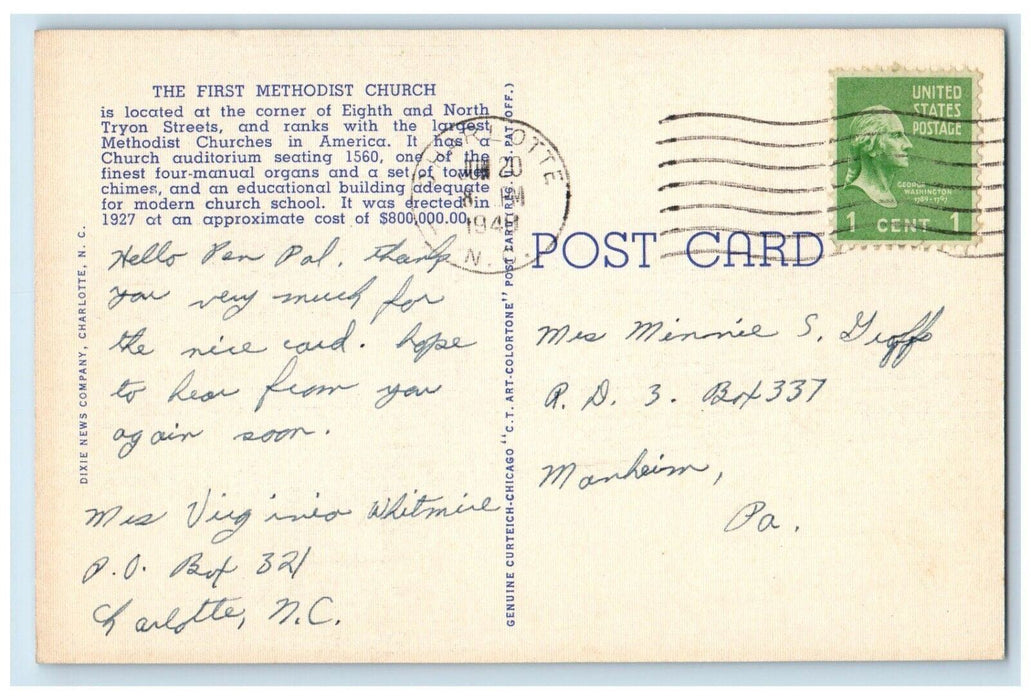 THE FIRST METHODIST CHURCH
is located at the corner of Eighth and North
Tryon Streets, and ranks with the largest
Methodist Churches in America. It has a
Church auditorium seating 1560, one of the
finest four-manual organs and a set of tower
chimes, and an educational building adequate
for modern church school. It was erected in
1927 at an approximate cost of $800,000.00.
Hello Pen Pal. thank
you very much for
the nice card. hope
to hear from you
again soon.
Mrs Virginia Whitmire
P.O. Box 321
Charlotte, N.C.
DIXIE NEWS COMPANY, CHARLOTTE, N. C.
GENUINE CURTEICH-CHICAGO "C.T. ART-COLORTONE" POST CARD (REG. U.S. PAT. OFF.)
CHARLOTTE
JUN 20
8 PM
1948
N.C.
POST CARD
UNITED
STATES
POSTAGE
GEORGE
WASHINGTON
1789-1797
1 CENT 1
Mrs Minnie S. Groff
R. D. 3. Box 337
Manheim,
Pa.